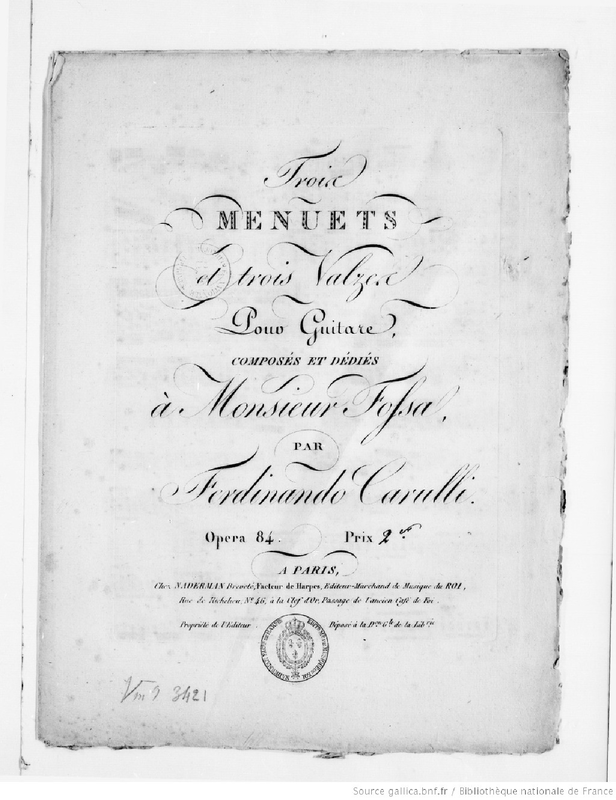 Trois
MENUETS
et trois Valzes
Pour Guitare,
COMPOSÉS ET DÉDIÉS
à Monsieur Fossa,
PAR
Ferdinando Carulli.
Opera 84. Prix 2f.
A PARIS,
Chez NADERMAN Breveté, Facteur de Harpes, Editeur-Marchand de Musique du ROI,
Rue de Richelieu, No. 46, à la Clef d'Or, Passage de l'ancien Café de Foi.
Propriété de l'Editeur. Déposé à la Don. Gle. de la Librie.
Vm9 3421
Source gallica.bnf.fr / Bibliothèque nationale de France